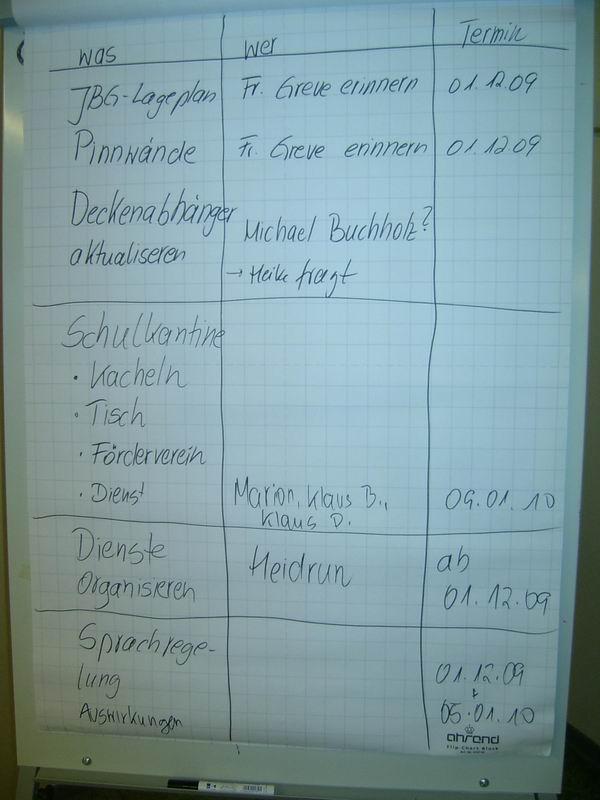 was wer Termin
JBG-Lageplan Fr. Greve erinnern 01.12.09
Pinnwände Fr. Greve erinnern 01.12.09
Deckenabhänger
Michael Buchholz?
aktualiseren
→ Heike fragt
Schulkantine
• Kacheln
• Tisch
• Förderverein
• Dienst Marion, Klaus B., 09.01.10
Klaus D.
Dienste Heidrun ab
Organisieren 01.12.09
Sprachrege-
lung 01.12.09
Auswirkungen 05.01.10
ahrend
Flip-Chart Block